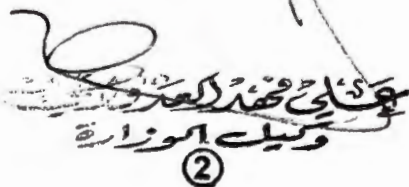 علي محمد العدواني
وكيل الوزارة
②